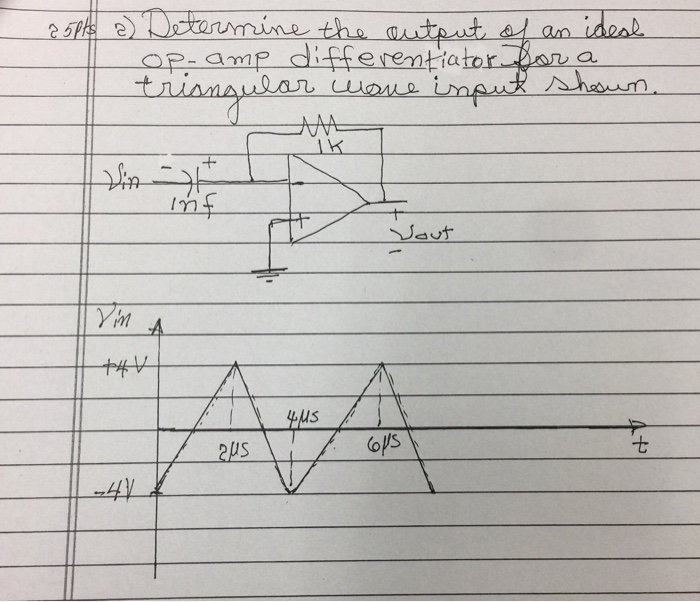 25pts 2) Determine the output of an ideal
op-amp differentiator for a
triangular wave input shown.
1K
Vin - +
1nf
-
+
+
Vout
-
Vin
+4V
4μs
2μs
6μs
t
-4V